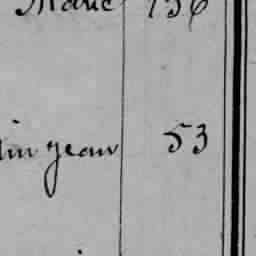 Marie 156
in jean 53